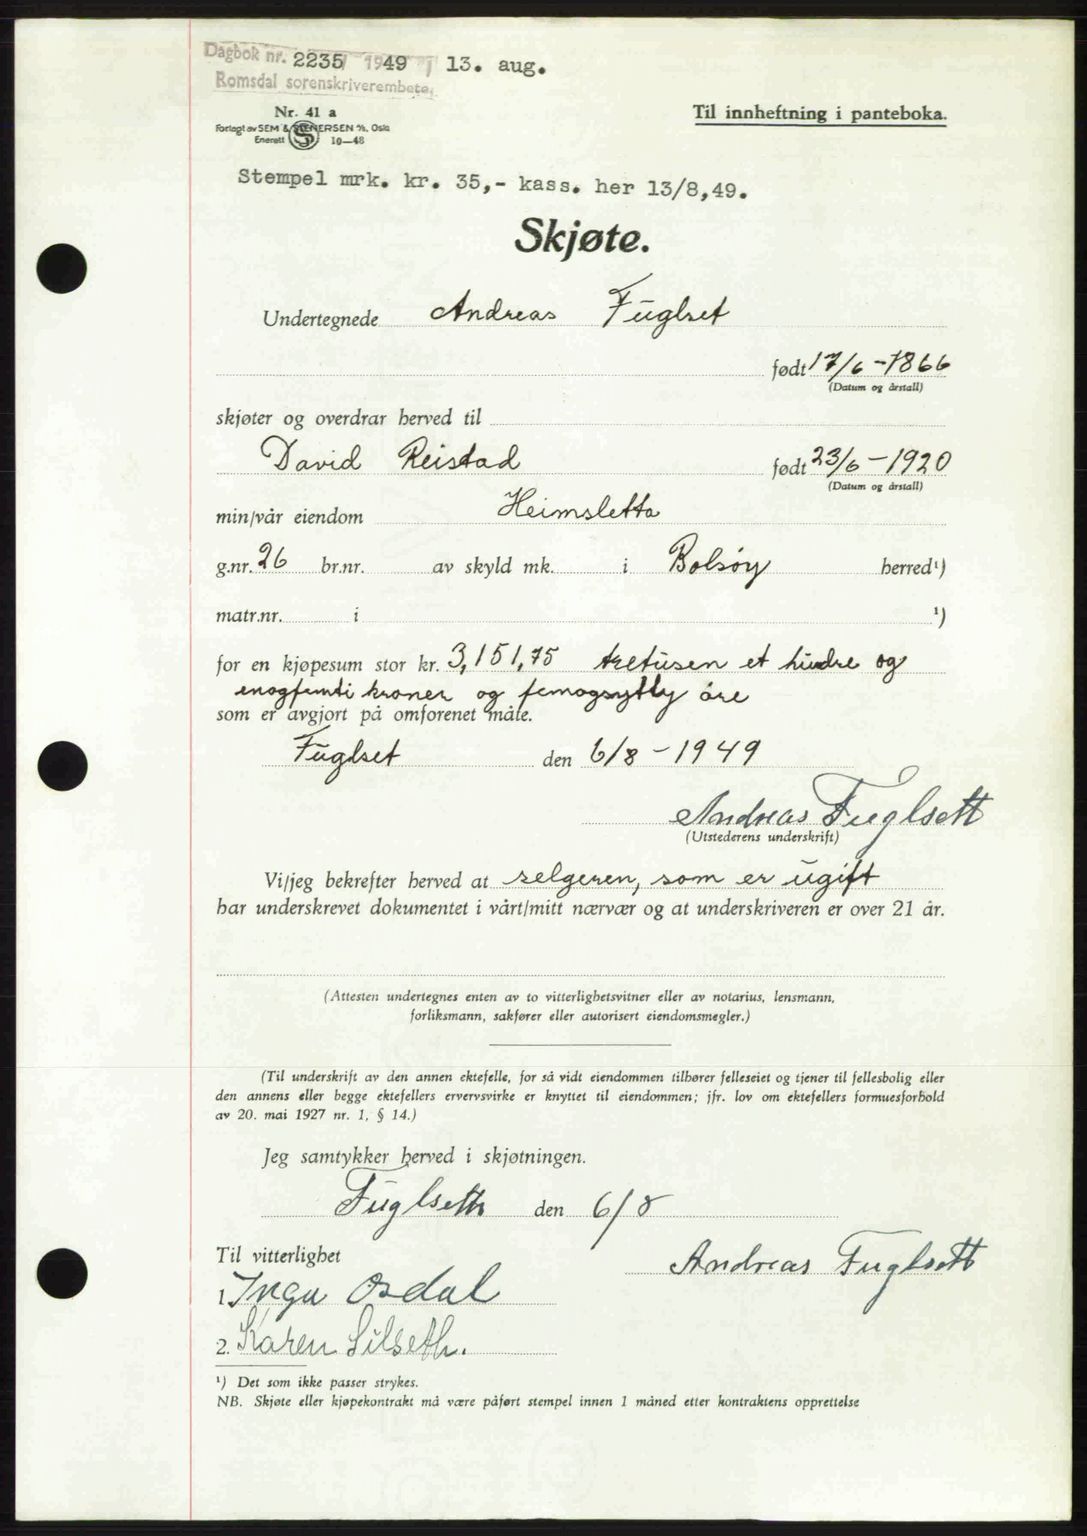 Dagbok nr. 2235/1949 13. aug.
Romsdal sorenskriverembete.
Nr. 41 a
Forlagt av SEM & STENERSEN A/S, Oslo
Enerett 10—48
Til innheftning i panteboka.
Stempel mrk. kr. 35,- kass. her 13/8,49.
Skjøte.
Undertegnede Andreas Fuglset
født 17/6 - 1866
(Datum og årstall)
skjøter og overdrar herved til
David Reistad født 23/6 - 1920
(Datum og årstall)
min/vår eiendom Heimsletta
g.nr. 26 br.nr. av skyld mk. i Bolsøy herred¹)
matr.nr. i ¹)
for en kjøpesum stor kr. 3,151,75 tretusen et hundre og
enogfemti kroner og femogsytty øre
som er avgjort på omforenet måte.
Fuglset den 6/8 - 1949
Andreas Fuglsett
(Utstederens underskrift)
Vi/jeg bekrefter herved at selgeren, som er ugift
har underskrevet dokumentet i vårt/mitt nærvær og at underskriveren er over 21 år.
(Attesten undertegnes enten av to vitterlighetsvitner eller av notarius, lensmann,
forliksmann, sakfører eller autorisert eiendomsmegler.)
(Til underskrift av den annen ektefelle, for så vidt eiendommen tilhører felleseiet og tjener til fellesbolig eller
den annens eller begge ektefellers ervervsvirke er knyttet til eiendommen; jfr. lov om ektefellers formuesforhold
av 20. mai 1927 nr. 1, § 14.)
Jeg samtykker herved i skjøtningen.
Fuglseth den 6/8
Til vitterlighet
Andreas Fuglsett
1. Inga Osdal
2. Karen Silseth.
¹) Det som ikke passer strykes.
NB. Skjøte eller kjøpekontrakt må være påført stempel innen 1 måned etter kontraktens opprettelse